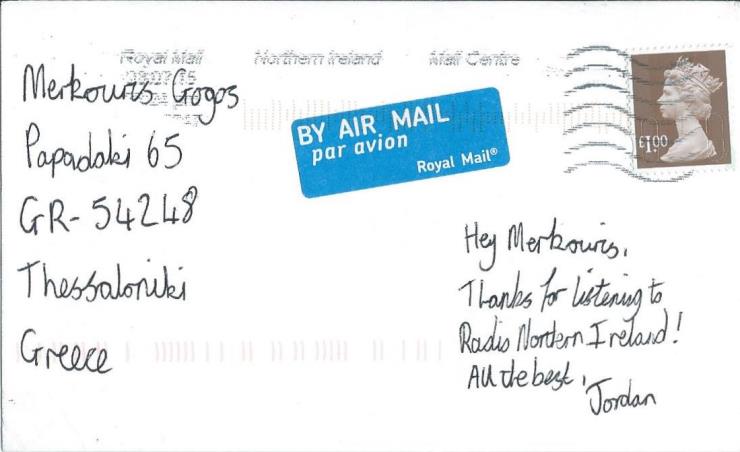 Royal Mail
Northern Ireland
Mail Centre
Merkouris Gogos
Papadaki 65
GR-54248
Thessaloniki
Greece
BY AIR MAIL
par avion
Royal Mail®
£1.00
Hey Merkouris,
Thanks for listening to
Radio Nortern Ireland!
All the best,
Jordan